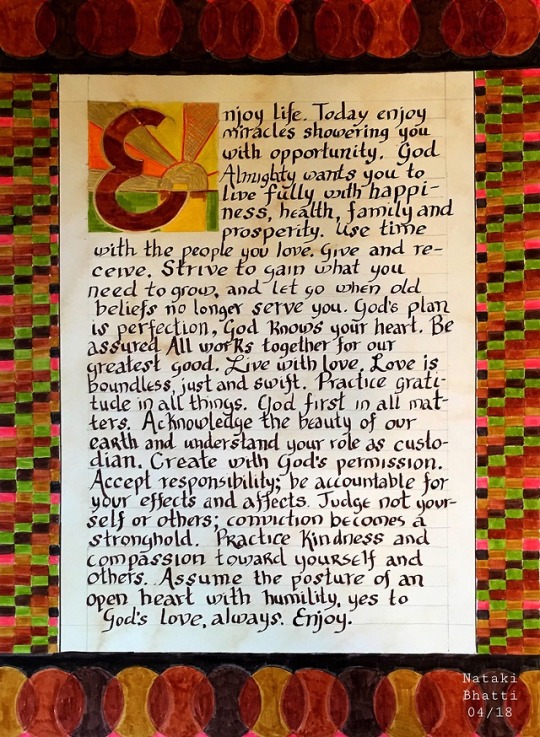 Enjoy life. Today enjoy
miracles showering you
with opportunity. God
Almighty wants you to
live fully with happi-
ness, health, family and
prosperity. Use time
with the people you love. Give and re-
ceive. Strive to gain what you
need to grow, and let go when old
beliefs no longer serve you. God's plan
is perfection, God knows your heart. Be
assured All works together for our
greatest good. Live with love. Love is
boundless, just and swift. Practice grati-
tude in all things. God first in all mat-
ters. Acknowledge the beauty of our
earth and understand your role as custo-
dian. Create with God's permission.
Accept responsibility; be accountable for
your effects and affects. Judge not your-
self or others; conviction becomes a
stronghold. Practice kindness and
compassion toward yourself and
others. Assume the posture of an
open heart with humility, yes to
God's love, always. Enjoy.
Nataki
Bhatti
04/18